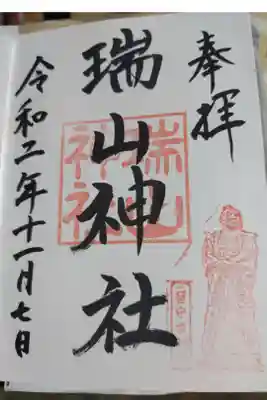 奉拝
瑞山神社
瑞山神社
令和二年十一月七日